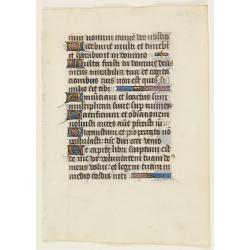 cum nomini tanqz deo nostro
Videbunt multi et timebt
et sperabunt in domino
Multa fecisti tu domine deus
meus mirabilia tua et cogita
cionibus tuis non est quis si
milis sit tibi
Annunciaui et locutus sum
multiplicati sunt super numerum
Sacrificium et oblationem
noluisti aures aut perfecisti m
Holocaustum et pro peccato no
postulasti tunc dixi ecce venio
In capite libri scriptum est
de me ut voluntatem tuam de
meus volui et legem tuam in
medio cordis mei